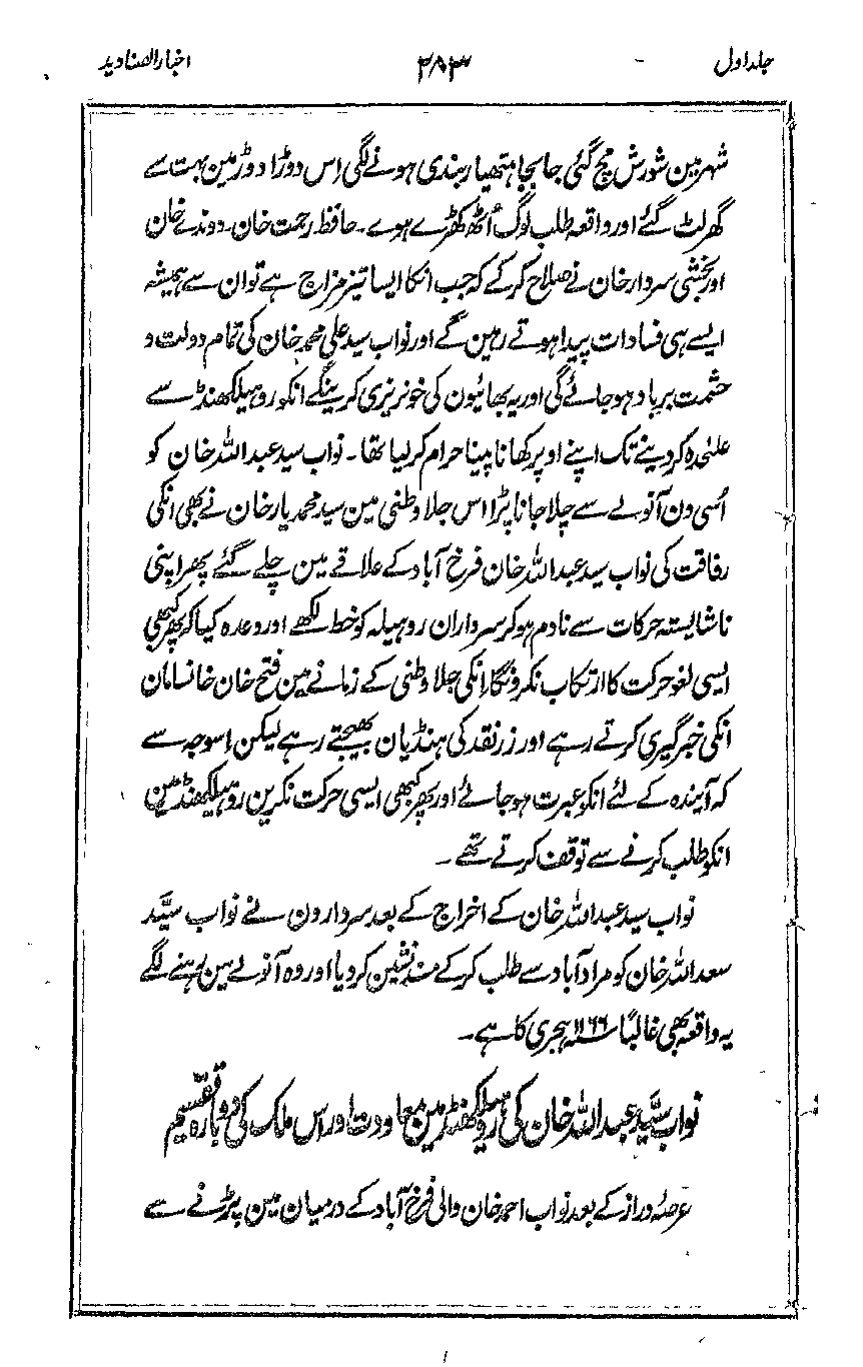 جلد اول ۲۸۳ اخبار الصنادید
شہر مین شورش مچ گئی جا بجا ہتھیار بندی ہونے لگی اِس دوڑا دوڑ مین بہت سے
گھر لٹ گئے اور واقعہ طلب لوگ اُٹھ کھڑے ہوے۔ حافظ رحمت خان۔ دوندے خان
اور بخشی سردار خان نے صلاح کر کے کہ جب انکا ایسا تیز مزاج ہے تو ان سے ہمیشہ
ایسے ہی فسادات پیدا ہوتے رہین گے اور نواب سید علی محمد خان کی تمام دولت و
حشمت برباد ہو جائے گی اور یہ بھائیون کی خونریزی کرینگے انکو روہیلکھنڈ سے
علٰحدہ کر دینے تک اپنے اوپر کھانا پینا حرام کر لیا تھا۔ نواب سید عبد اللہ خان کو
اُسی دن آنولے سے چلا جانا پڑا اس جلا وطنی مین سید محمد یار خان نے بھی انکی
رفاقت کی نواب سید عبد اللہ خان فرخ آباد کے علاقے مین چلے گئے پھر اپنی
ناشایستہ حرکات سے نادم ہو کر سرداران روہیلہ کو خط لکھے اور وعدہ کیا کہ پھر کبھی
ایسی لغو حرکت کا ارتکاب نکرونگا انکی جلا وطنی کے زمانے مین فتح خان خانسامان
انکی خبر گیری کرتے رہے اور زر نقد کی ہنڈیان بھیجتے رہے لیکن اِسوجہ سے
کہ آیندہ کے لئے انکو عبرت ہو جائے اور پھر کبھی ایسی حرکت نکرین روہیلکھنڈ مین
انکو طلب کرنے سے توقف کرتے تھے۔
نواب سید عبد اللہ خان کے اخراج کے بعد سردارون نے نواب سیّد
سعد اللہ خان کو مراد آباد سے طلب کر کے مسند نشین کر دیا اور وہ آنولے مین رہنے لگے
یہ واقعہ بھی غالبًا ۱۱۶۶ ہجری کا ہے۔
نواب سیّد عبد اللہ خان کی روہیلکھنڈ مین معاودت اور اس ملک کی دوبارہ تقسیم
عرصۂ دراز کے بعد نواب احمد خان والی فرخ آباد کے درمیان مین پڑنے سے